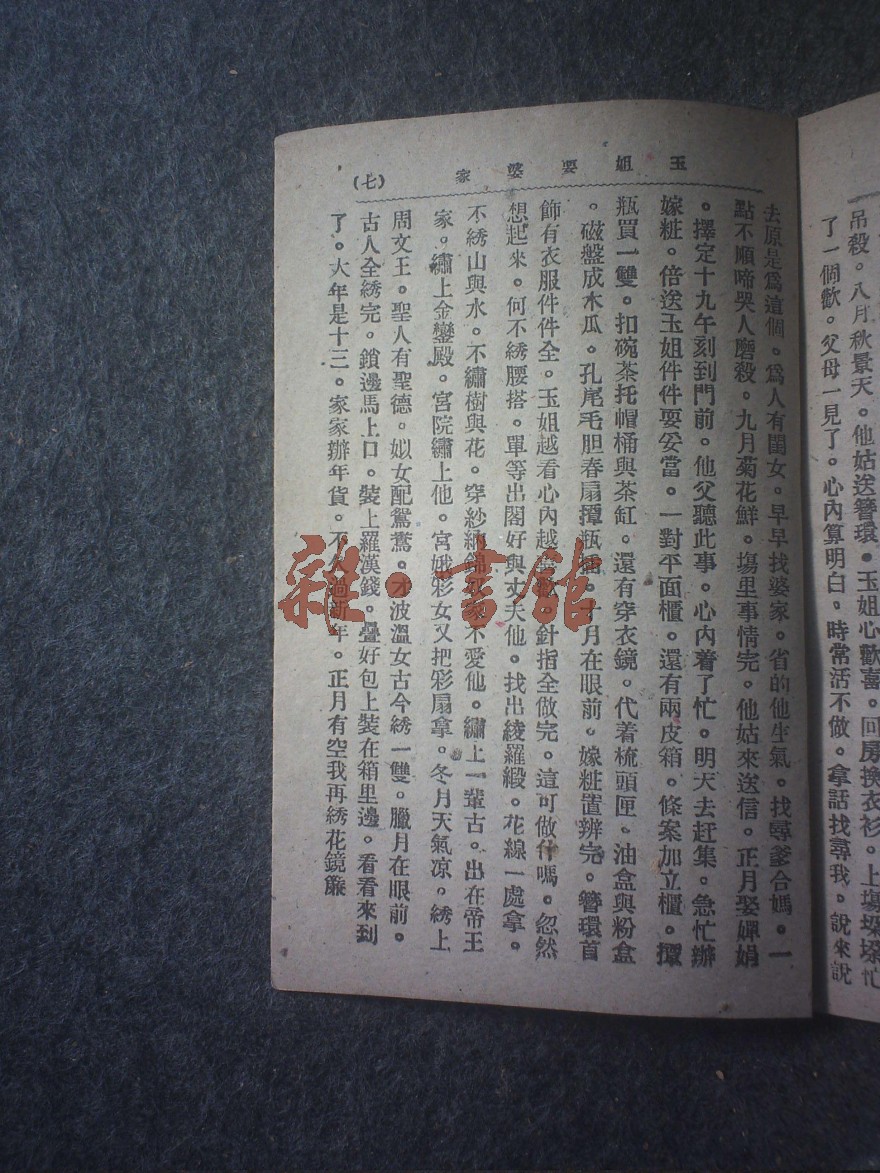 吊殺。八月秋景天。他姑送簪環。玉姐心歡喜。回房換衣衫。上塲垜垜忙
了一個歡。父母一見了。心內算明白。時常活不做。拿話找尋我。說來說
玉姐要婆家
(七)
去原是爲這個。爲人有閨女。早早找婆家。省的他生氣。找尋爹合媽。一
點不順啼哭人磨殺。九月菊花鮮。塲里事情完。他姑來送信。正月娶嬋娟
。擇定十九午刻到門前。他父聽此事。心內着了忙。明天去赶集。急忙辦
嫁粧。倍送玉姐件件要妥當。一對平面櫃。還有兩皮箱。條案加立櫃。撢
瓶買一雙。扣碗茶托帽桶與茶缸。還有穿衣鏡。代着梳頭匣。油盒與粉盒
。磁盤成木瓜。孔尾毛胆春扇撢瓶插。十月在眼前。嫁粧置辨完。簪環首
飾有衣服件件全。玉姐越看心內越喜歡。針指全做完。這可做什嗎。忽然
想起來。何不綉腰搭。單等出閣好與丈夫他。找出綾羅緞。花線一處拿。
不綉山與水。不繡樹與花。穿紗納錦奴家不愛他。繡上一輩古。出在帝王
家。繡上金鑾殿。宮院繡上他。宮娥彩女又把彩扇拿。冬月天氣凉。綉上
周文王。聖人有聖德。姒女配鴛鴦。才波溫女古今綉一雙。臘月在眼前。
古人全綉完。鎖邊馬上口。裝上羅漢錢。疊好包上裝在箱里邊。看看來到
了。大年是十三。家家辦年貨。不久過新年。正月有空我再綉花鏡簾
雜·書館